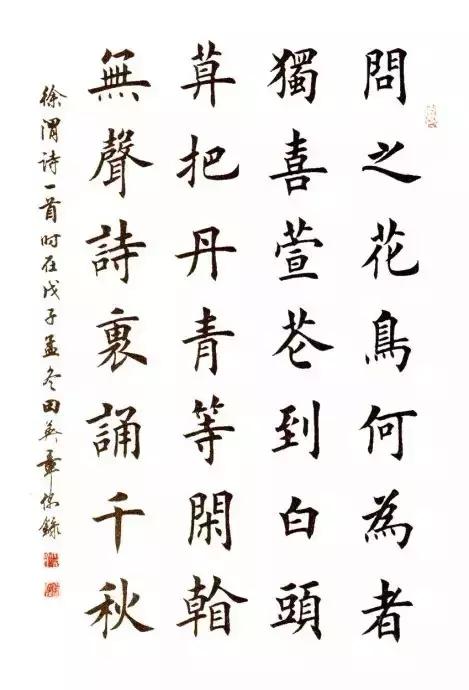 問之花鳥何為者
獨喜萱花到白頭
莫把丹青等閑看
無聲詩裏誦千秋
徐渭诗一首时在戊子孟冬田英章錄